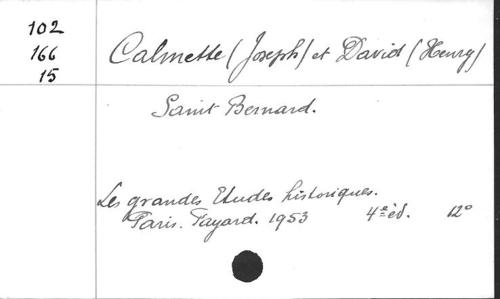 102
166
15
Calmette (Joseph) et David (Henry)
Saint Bernard.
Les grandes Etudes historiques.
Paris. Fayard. 1953 4e éd. 12°